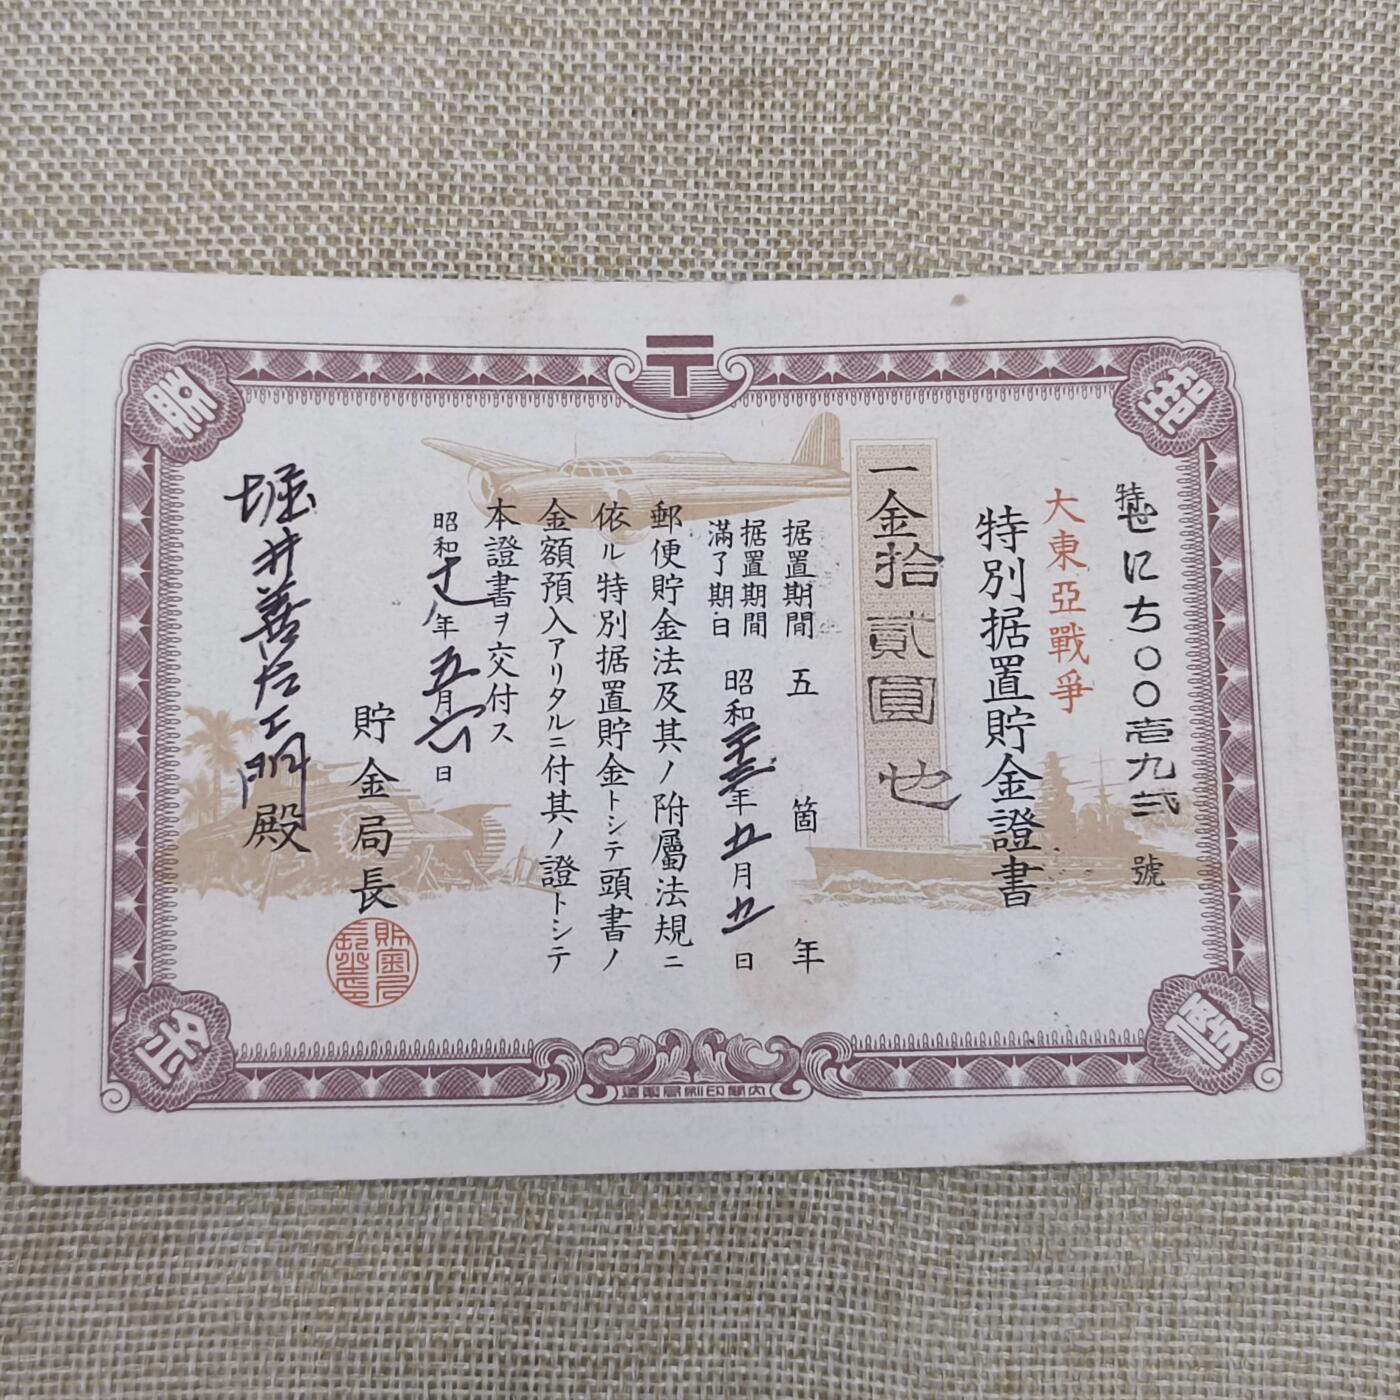 〒
特せにち〇〇〇壱九弐號
大東亞戰爭
特別据置貯金證書
一金拾貳圓也
据置期間 五箇年
据置期間
滿了期日
昭和二十三年五月五日
郵便貯金法及其ノ附屬法規ニ
依ル特別据置貯金トシテ頭書ノ
金額預入アリタルニ付其ノ證トシテ
本證書ヲ交付ス
昭和十八年五月六日
貯金局長
堀井善左エ門殿
內閣印刷局製造